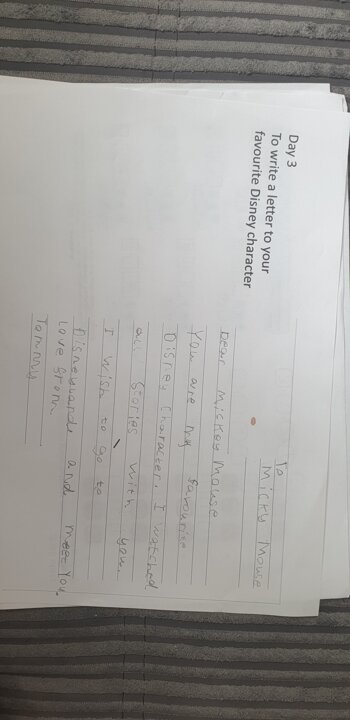 Day 3
To write a letter to your
favourite Disney character
To
Micky Mouse
Dear Mickey Mouse
You are my favourite
Disney Character. I watched
all stories with you.
I wish to go to
Disneylande and meet you.
Love from
Tommy